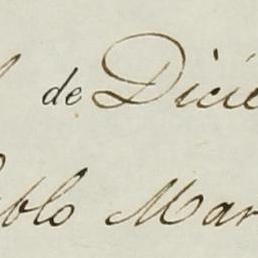 de Dicie
ablo Mar